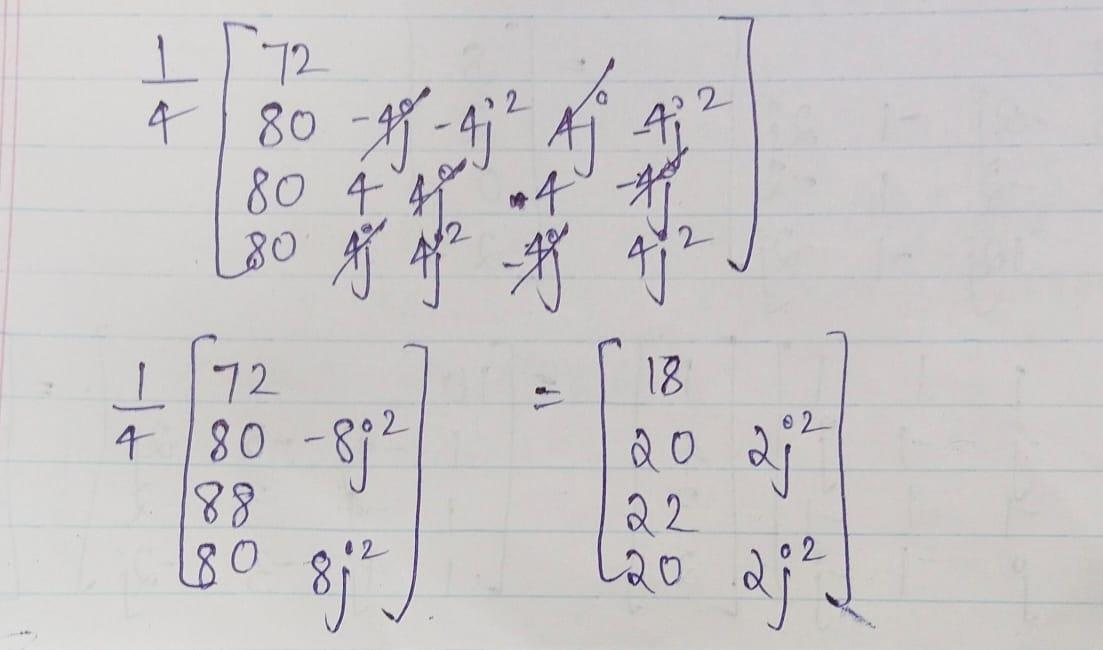 1/4 [ 72
80 -4j -4j² 4j -4j²
80 4 4j 4 -4j
80 4j 4j² -4j 4j² ]
1/4 [ 72
80 -8j²
88
80 8j² ] = [ 18
20 2j²
22
20 2j² ]